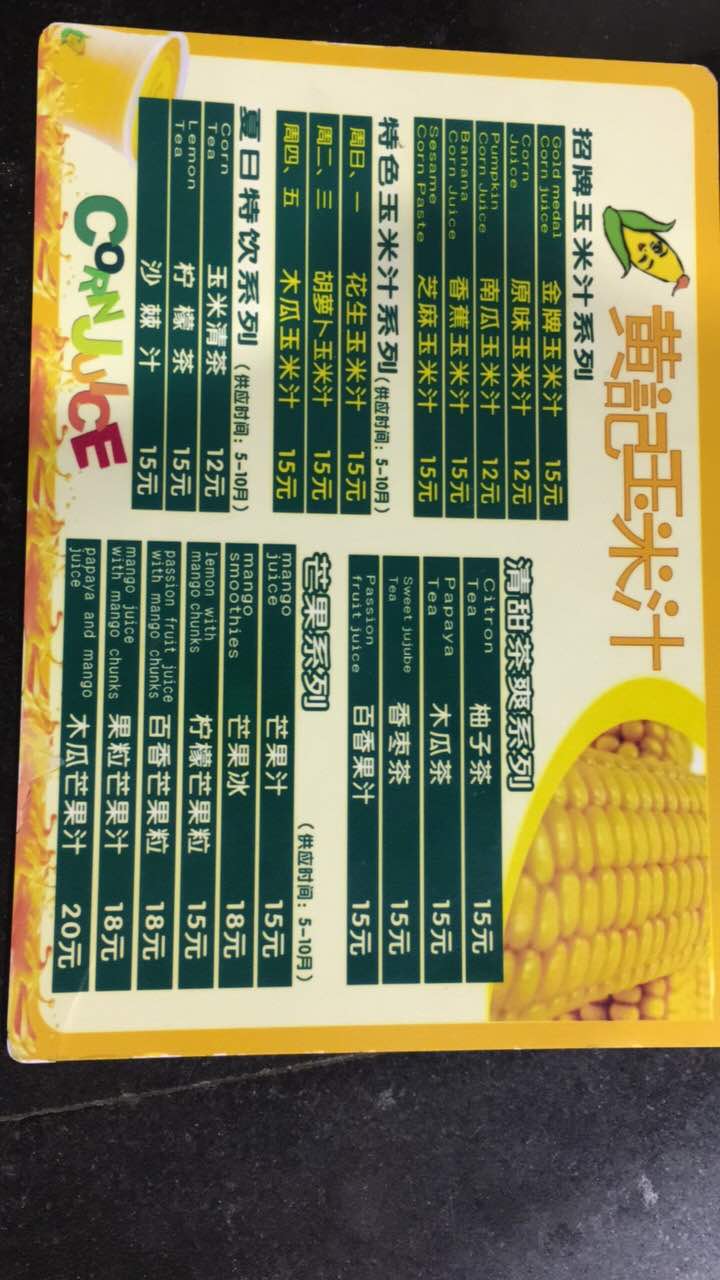 黄記玉米汁
招牌玉米汁系列
Gold medal Corn juice 金牌玉米汁 15元
Corn Juice 原味玉米汁 12元
Pumpkin Corn Juice 南瓜玉米汁 12元
Banana Corn Juice 香蕉玉米汁 15元
Sesame Corn Paste 芝麻玉米汁 15元
特色玉米汁系列(供应时间:5-10月)
周日、一 花生玉米汁 15元
周二、三 胡萝卜玉米汁 15元
周四、五 木瓜玉米汁 15元
夏日特饮系列 (供应时间:5-10月)
Corn Tea 玉米清茶 12元
Lemon Tea 柠檬茶 15元
沙棘汁 15元
CORN JUICE
清甜茶爽系列
Citron Tea 柚子茶 15元
Papaya Tea 木瓜茶 15元
Sweet jujube Tea 香枣茶 15元
Passion fruit juice 百香果汁 15元
芒果系列 (供应时间:5-10月)
mango juice 芒果汁 15元
mango smoothies 芒果冰 18元
lemon with mango chunks 柠檬芒果粒 15元
passion fruit juice with mango chunks 百香芒果粒 18元
mango juice with mango chunks 果粒芒果汁 18元
papaya and mango juice 木瓜芒果汁 20元